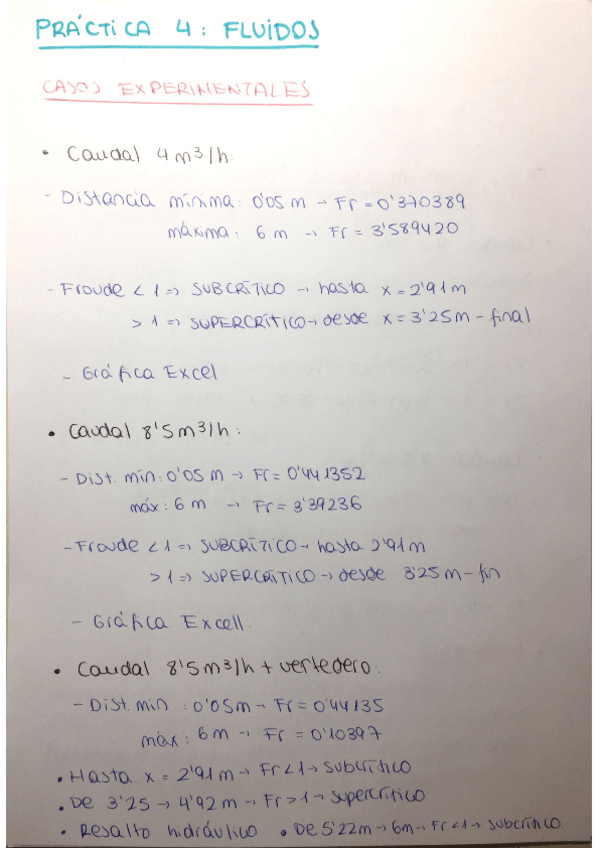 PRÁCTICA 4: FLUIDOS
CASOS EXPERIMENTALES
• Caudal 4 m³/h:
- Distancia mínima: 0'05 m → Fr = 0'370389
máxima: 6 m → Fr = 3'589420
- Froude < 1 => SUBCRÍTICO → hasta x = 2'91 m
> 1 => SUPERCRÍTICO → desde x = 3'25 m - final
- Gráfica Excel
• Caudal 8'5 m³/h:
- Dist. mín: 0'05 m → Fr = 0'441352
máx: 6 m → Fr = 3'39236
- Froude < 1 => SUBCRÍTICO → hasta 2'91 m
> 1 => SUPERCRÍTICO → desde 3'25 m - fin
- Gráfica Excell.
• Caudal 8'5 m³/h + vertedero:
- Dist. min : 0'05 m → Fr = 0'44135
máx: 6 m → Fr = 0'10397
• Hasta x = 2'91 m → Fr < 1 → Subcrítico
• De 3'25 → 4'92 m → Fr > 1 → Supercrítico
• Resalto hidráulico • De 5'22 m → 6 m → Fr < 1 → subcrítico